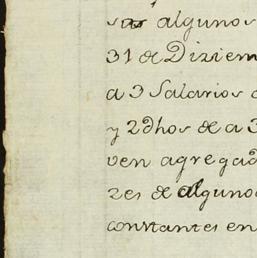 sas algunos
31 de Diziem
a 3 Salarios
y 2 dhos de a 3
ven agregad
zes de alguno
constantes en